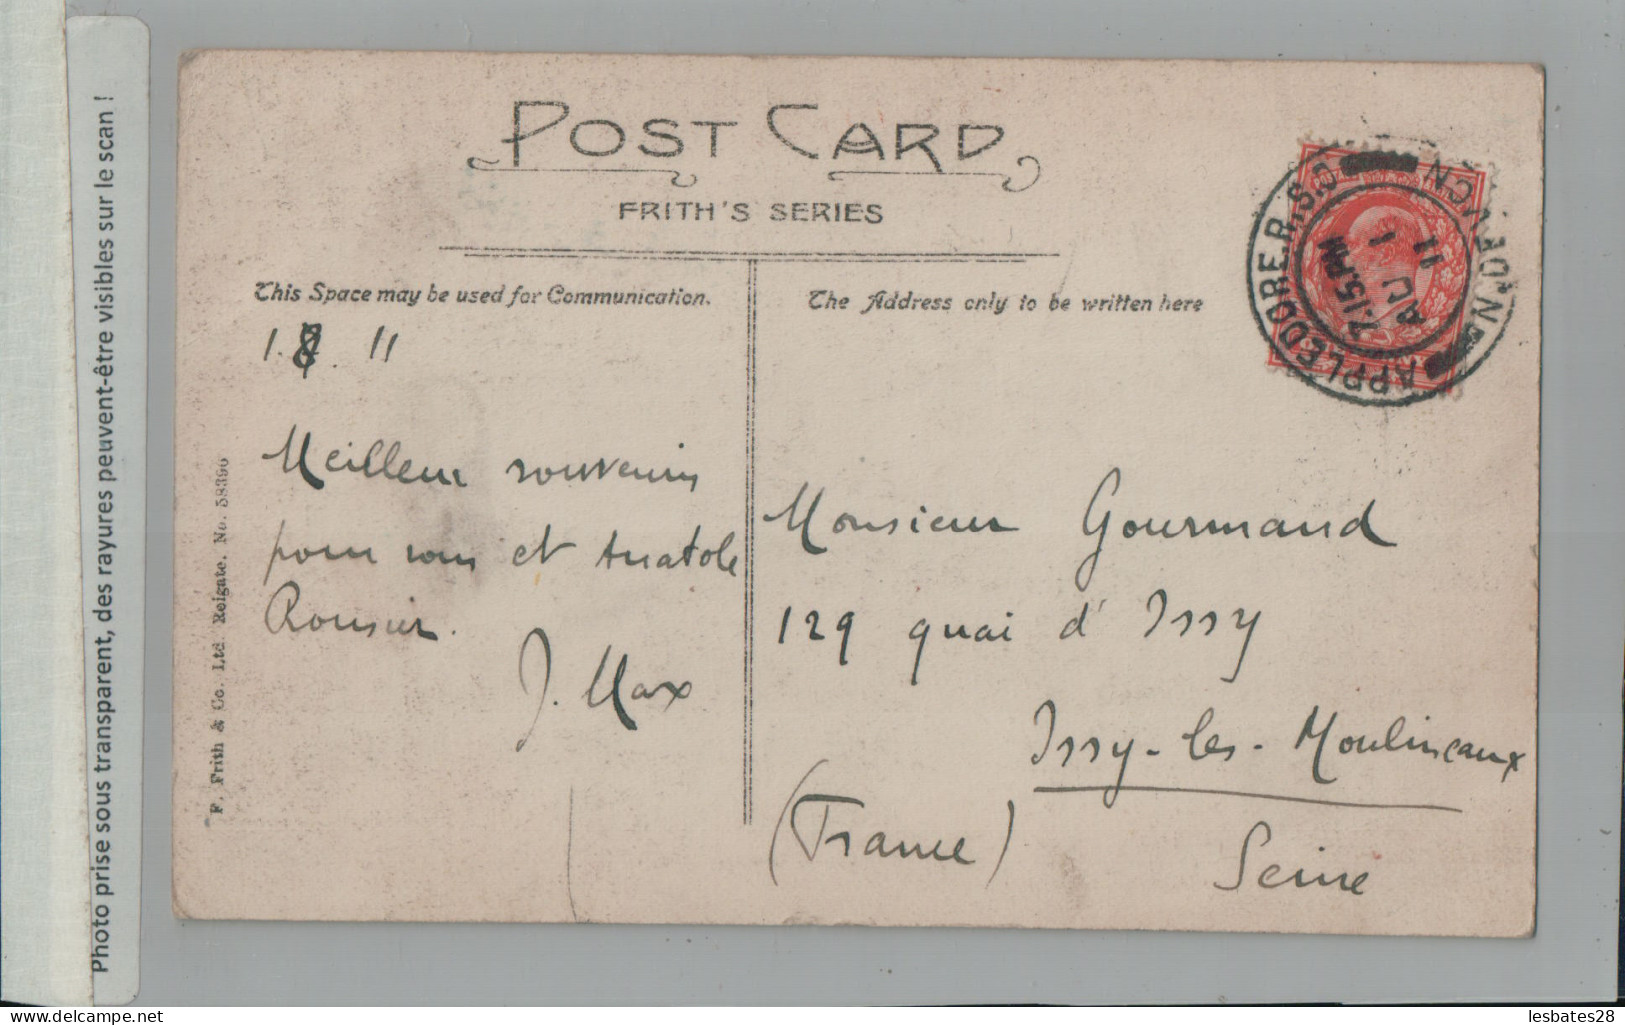 Photo prise sous transparent, des rayures peuvent-être visibles sur le scan !
POST CARD
FRITH'S SERIES
This Space may be used for Communication.
The Address only to be written here
1.8.11
Meilleurs souvenirs
pour vous et Anatole
J. Max
Monsieur Gourmand
129 quai d'Issy
Issy-les-Moulineaux
(France)
Seine
F. Frith & Co. Ltd. Reigate. No. 58396
APPLEDORE.R.S.O
N.DEVON
7.15.PM
AU 1
11
www.delcampe.net
lesbates28